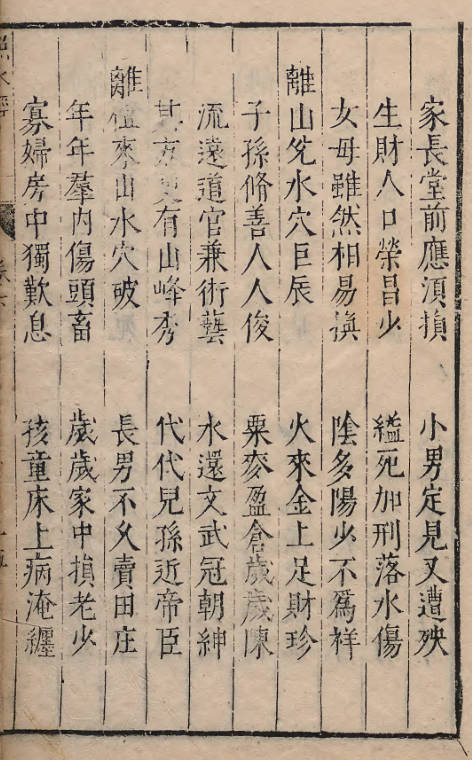 家長堂前應湏損　小男定見又遭殃
生財人口榮昌少　縊死加刑落水傷
女母雖然相易換　陰多陽少不爲祥
離山兊水穴巨辰　火來金上足財珍
子孫脩善人人俊　粟麥盈倉歲歲陳
流遠道官兼術藝　水還文武冠朝紳
其方更有山峰秀　代代兒孫近帝臣
離 來山水穴破　長男不久賣田庄
年年羣內傷頭畜　歲歲家中損老少
寡婦房中獨歎息　孩童床上病淹纏
水